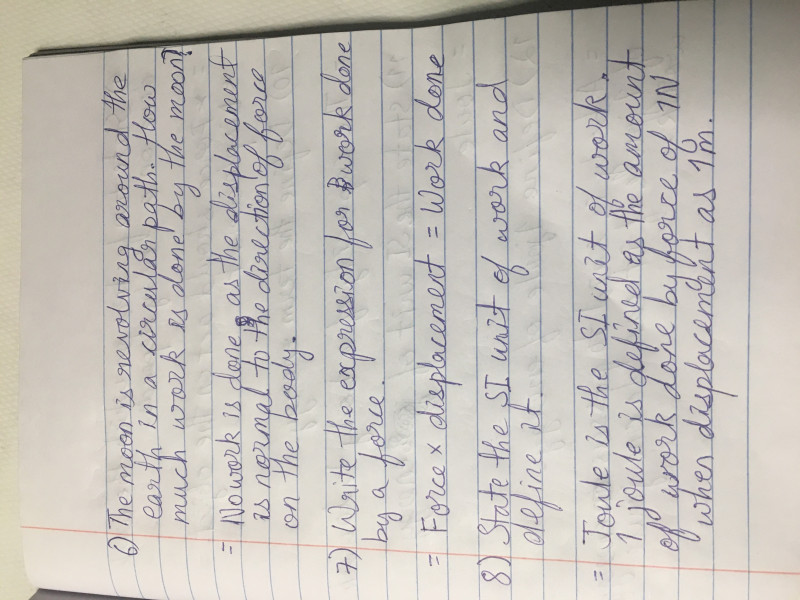 6) The moon is revolving around the
earth in a circular path. How
much work is done by the moon?
= No work is done as the displacement
is normal to the direction of force
on the body.
7) Write the expression for work done
by a force.
= Force x displacement = Work done
8) State the SI unit of work and
define it.
= Joule is the SI unit of work.
1 joule is defined as the amount
of work done by force of 1N
when displacement as 1m.